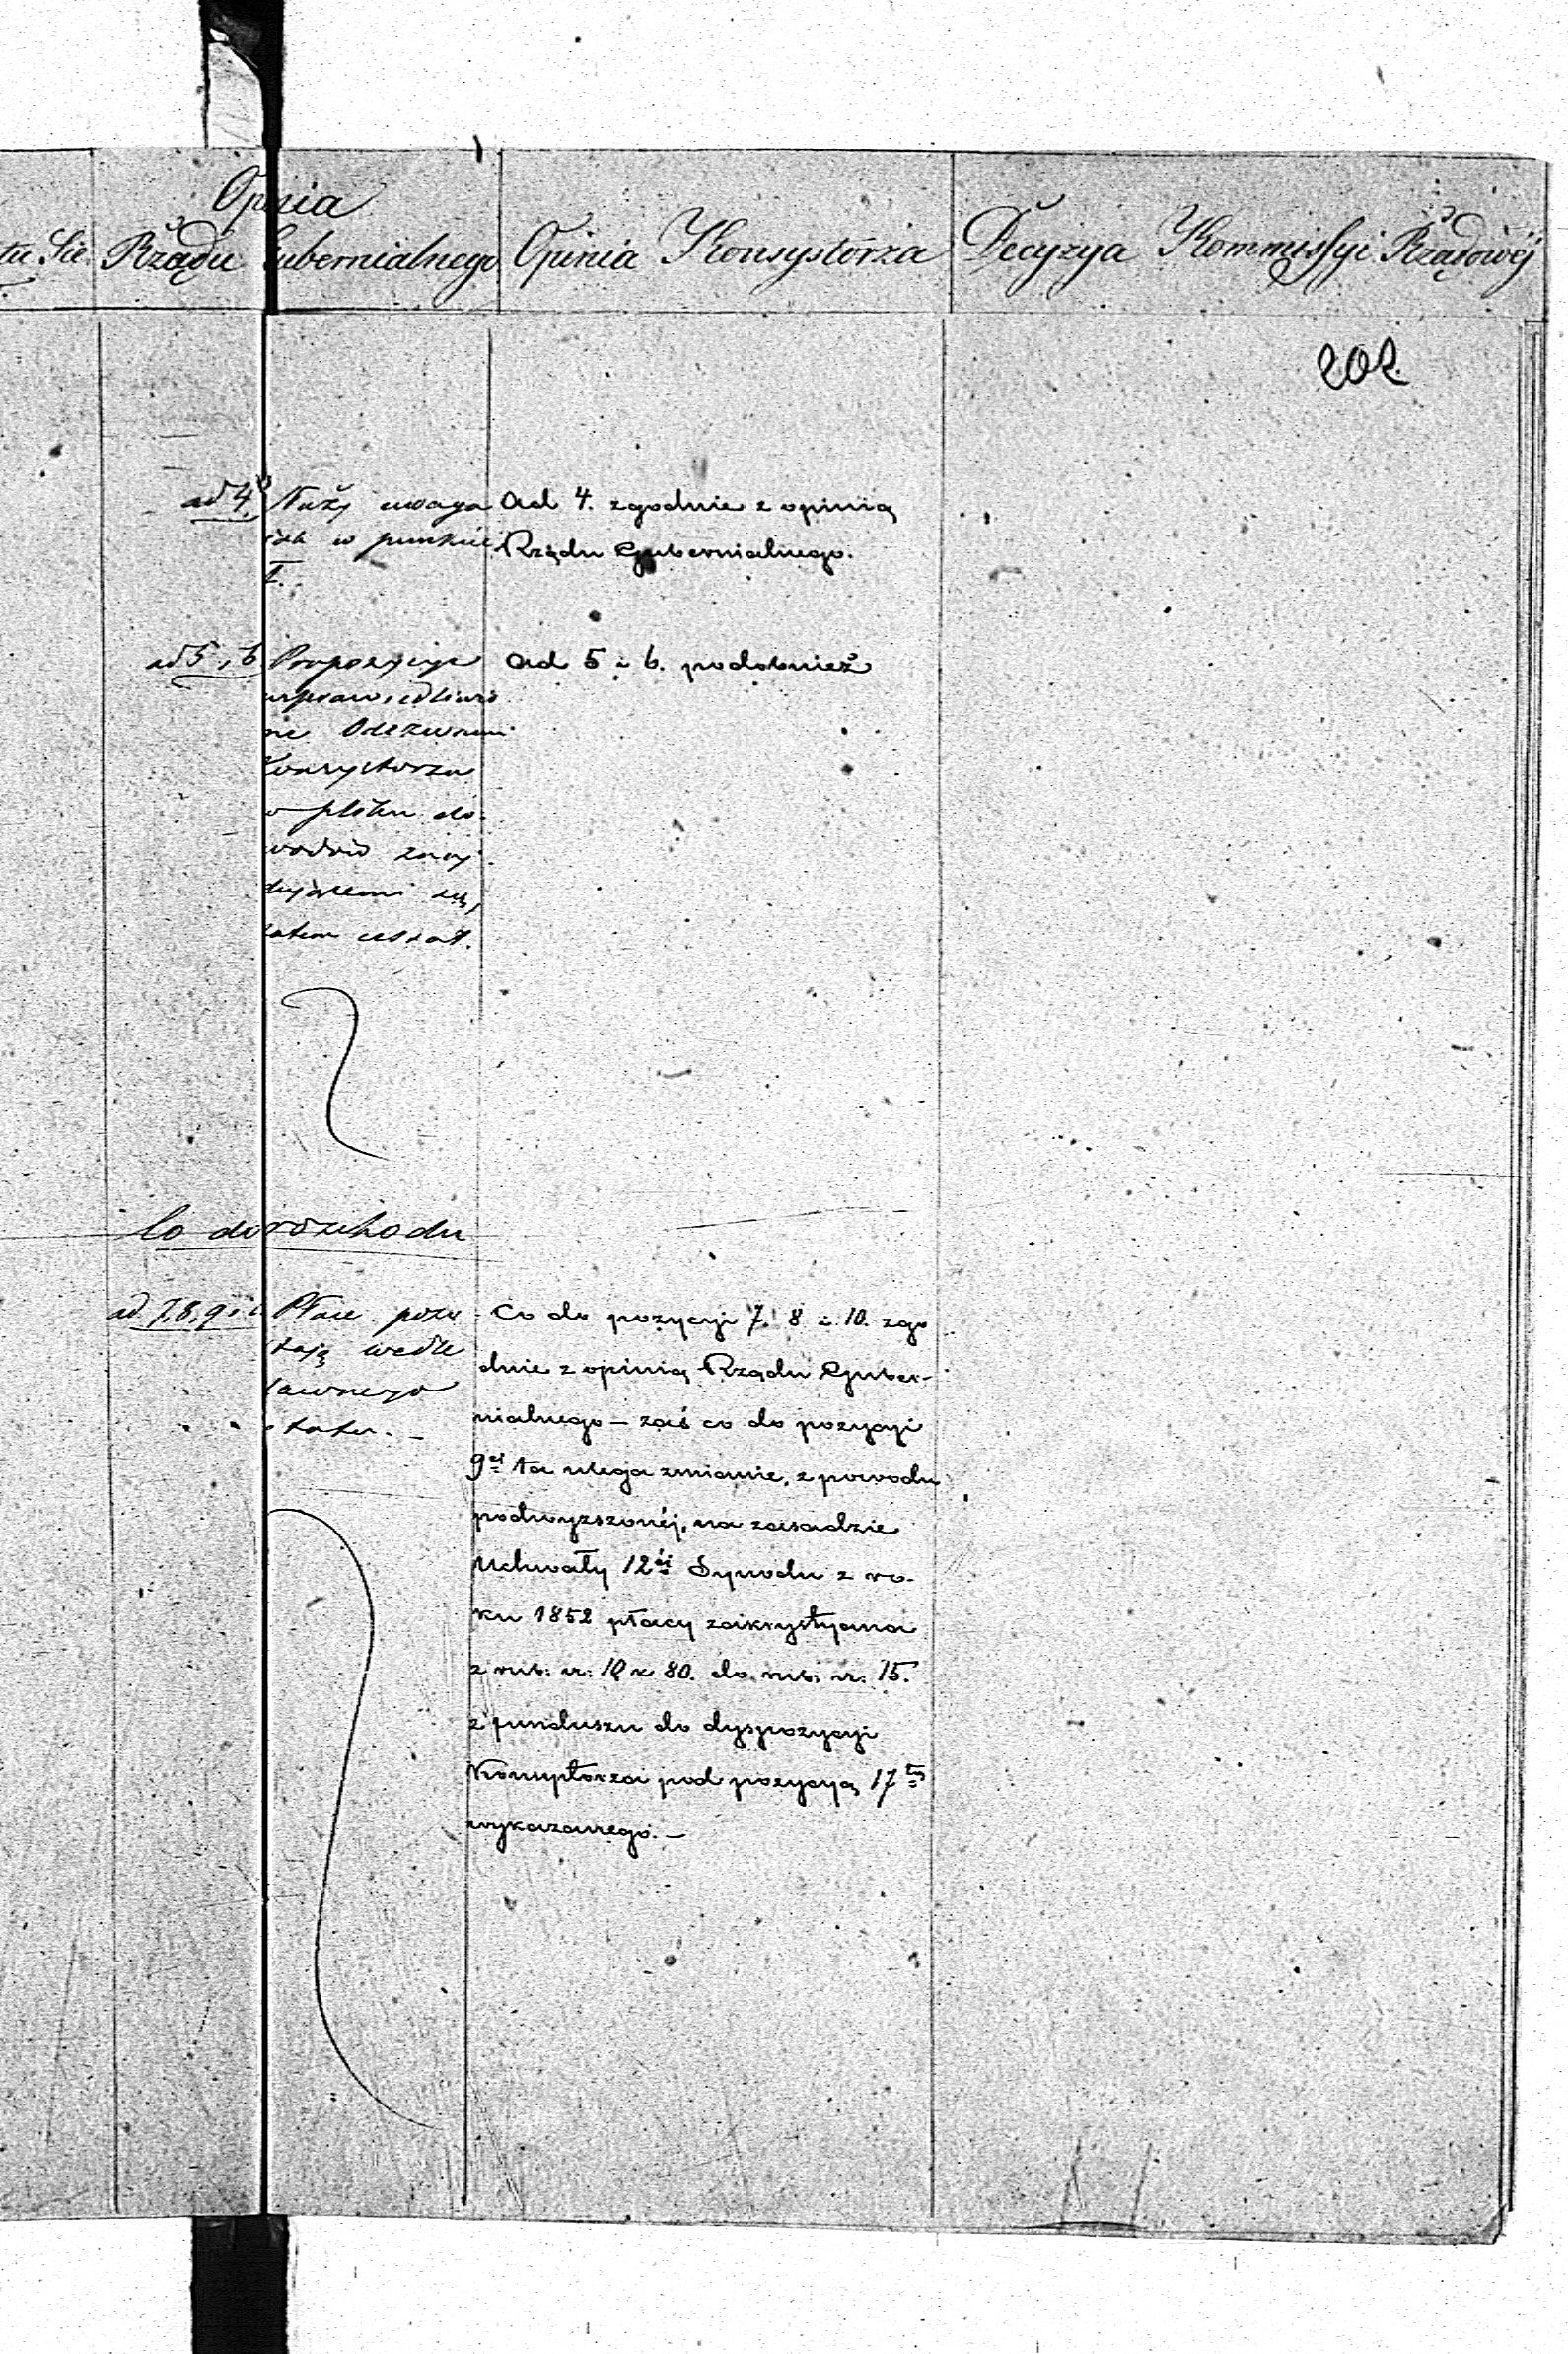 Opinia
tu Sie
Rządu Gubernialnego
Opinia Konsystorza
Decyzya Kommissyi Rządowéj
202
ad 4
uwaga
w punkcie
I.
Ad 4. zgodnie z opinią
Rządu Gubernialnego.
ad 5 i 6 Propozycye
usprawiedliwio
ne
Konsystorza
w
do-
wodów znaj-
dującemi się,
zatem
Ad 5 i 6. podobnież
Co do rozchodu
ad 7, 8, 9 i Płace pozo
stają wedle
dawnego
etatu. –
Co do pozycyi 7. 8 i 10. zgo
dnie z opinią Rządu Guber-
nialnego – zaś co do pozycyi
9éj ta ulega zmianie, z powodu
podwyższonéj, na zasadzie
Uchwały 12éj Synodu z ro-
ku 1852 płacy zakrystyana
z rub: sr: 10 k 80. do rub: sr: 15.
z funduszu do dyspozycyi
Konsystorza pod pozycyą 17tą
wykazanego. –